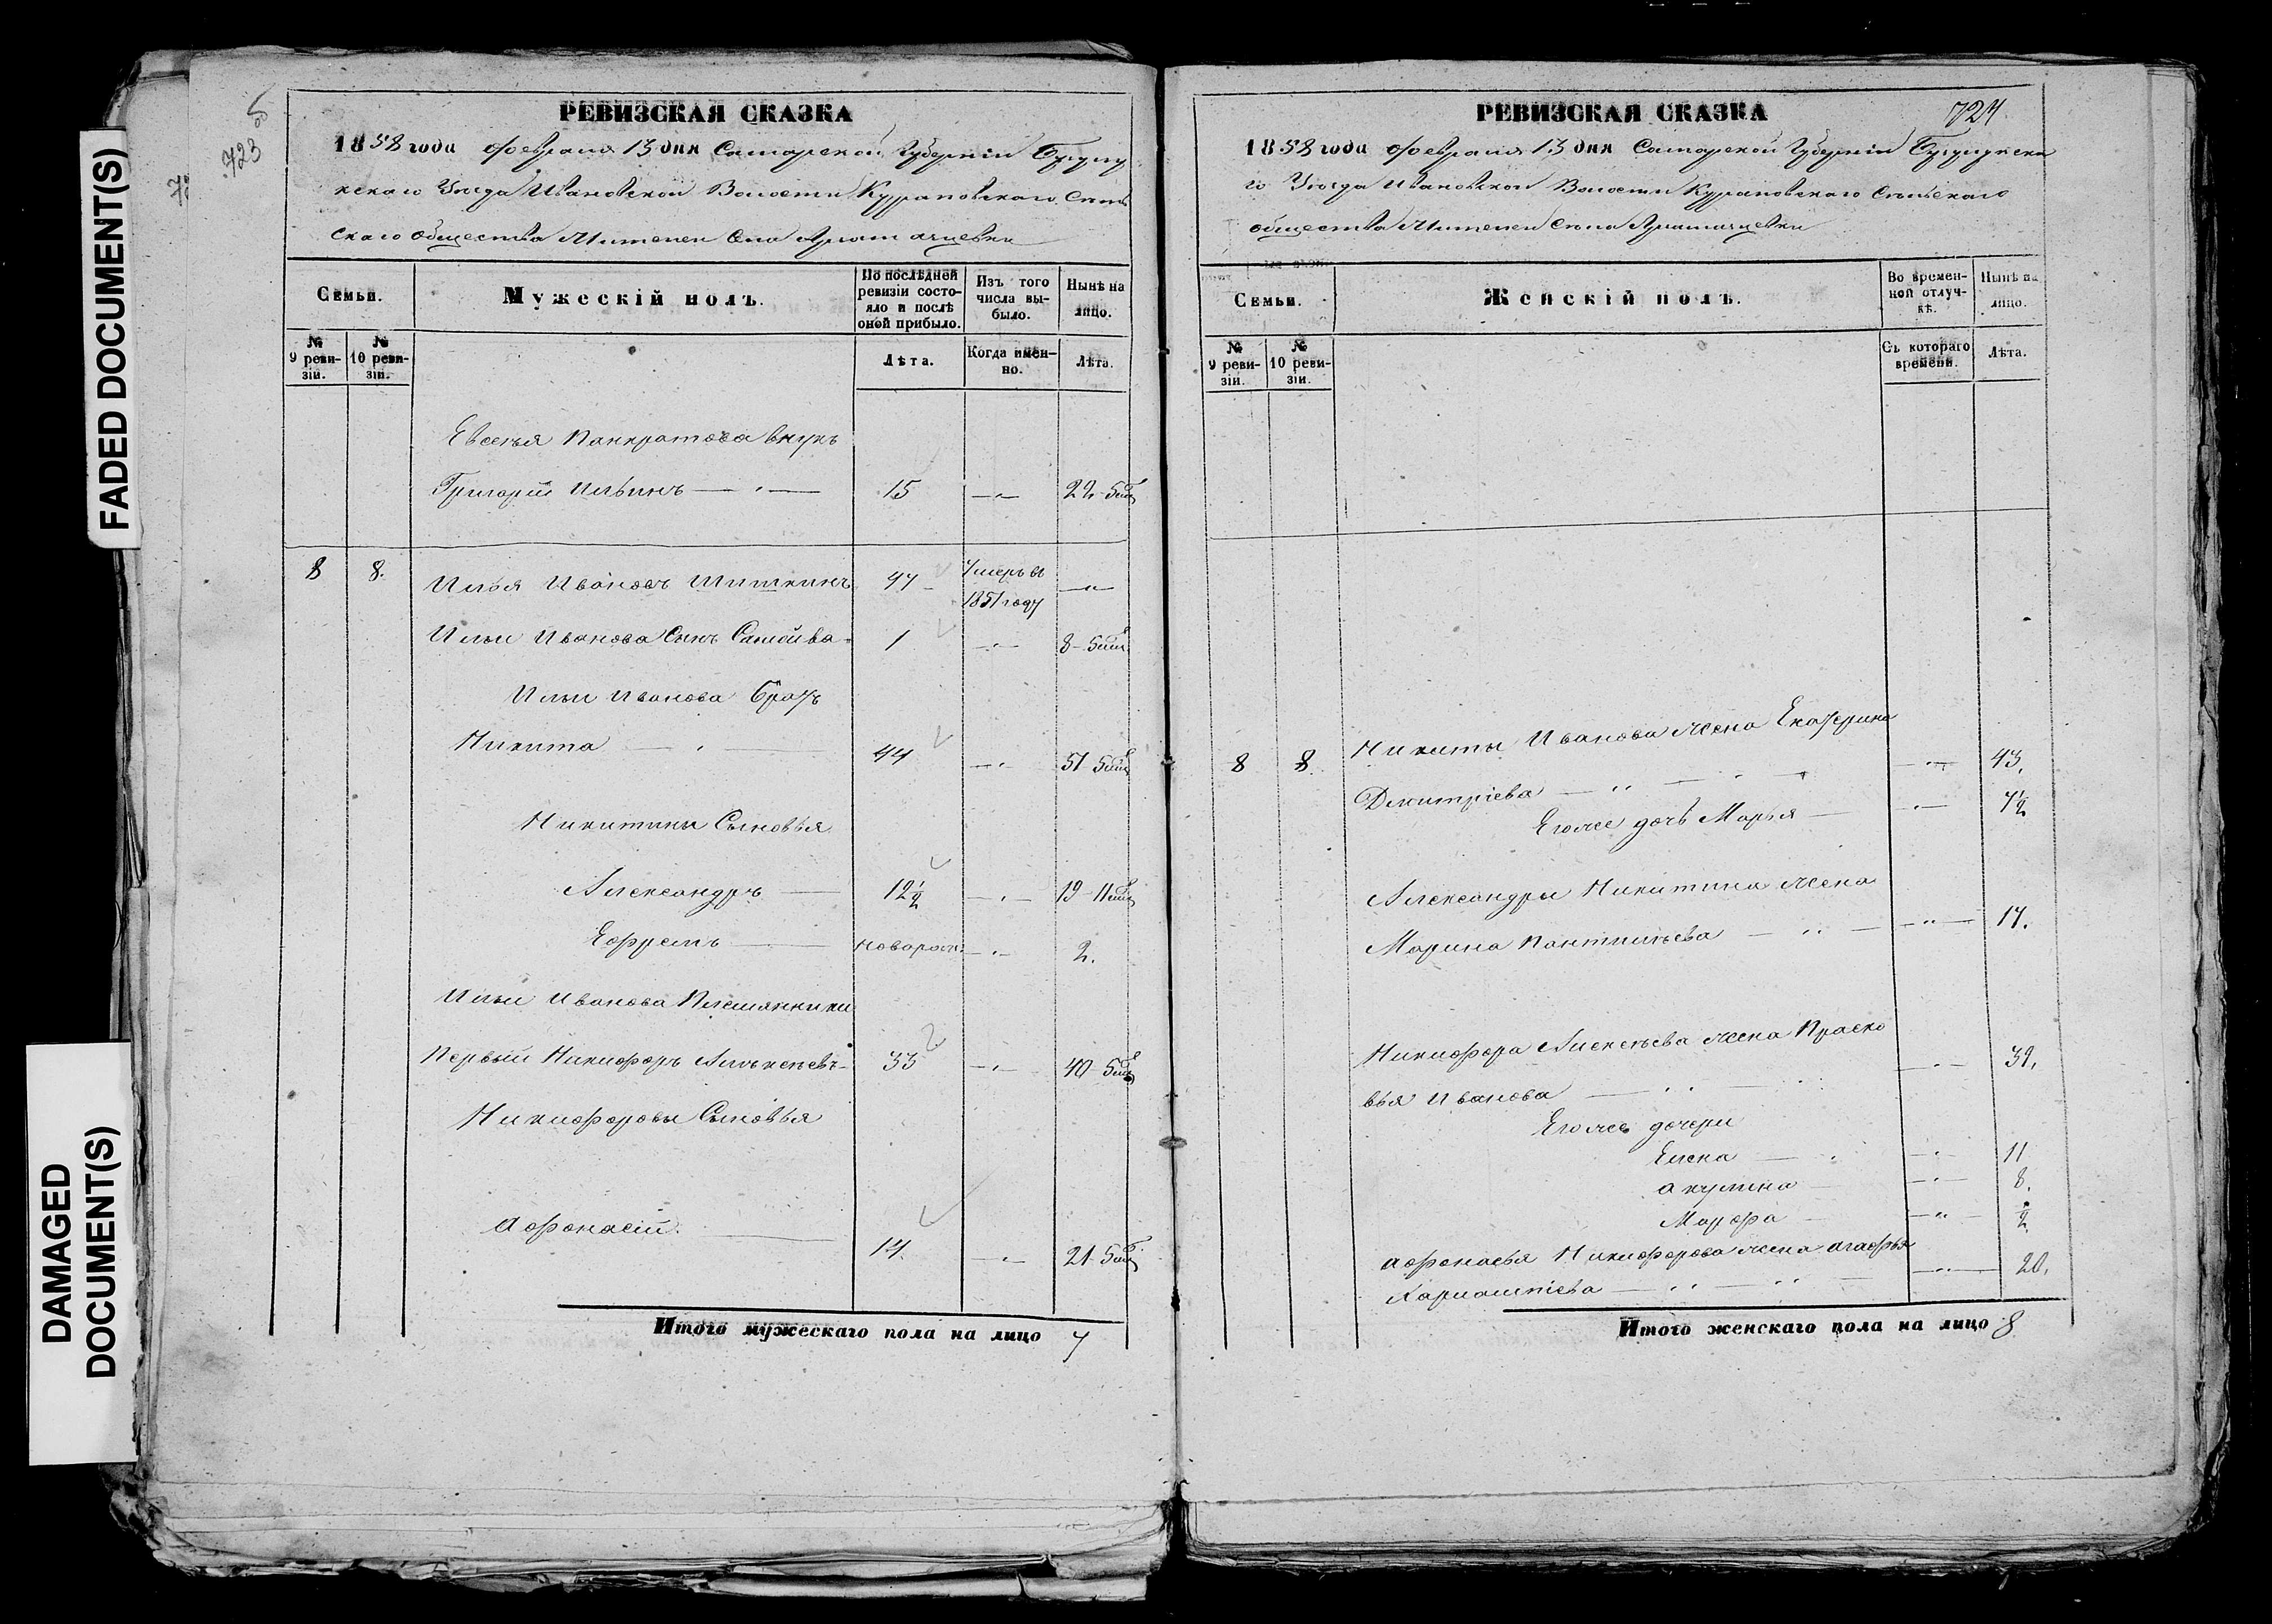 FADED DOCUMENT(S)
DAMAGED
DOCUMENT(S)
723
РЕВИЗСКАЯ СКАЗКА
1858 года февраля 13 дня Самарской Губерніи Бузулу
кскаго Уѣзда Ивановской Волости Курановскаго Сель
скаго общества
Семьи.
Мужескій полъ.
По послѣдней ревизіи состояло и послѣ оной прибыло.
Изъ того числа выбыло.
Нынѣ на лицо.
№ 9 ревизіи.
№ 10 ревизіи.
Лѣта.
Когда именно.
Лѣта.
Евсевья Панкратова внукъ
Григорій Ильинъ 15 22
8 8. Илья Ивановъ Шишкинъ 47 Умеръ въ 1851 году
Ильи Иванова Сынъ 1 8
Ильи Иванова братъ
Никита 44 51
Никитины Сыновья
Александръ 12½ 19
Ефремъ 2.
Ильи Иванова Племянники
Первый Никифоръ Алексѣевъ 33 40
Никифоровы Сыновья
Афонасій 14. 21
Итого мужескаго пола на лицо 7
РЕВИЗСКАЯ СКАЗКА
724
1858 года февраля 13 дня Самарской Губерніи Бузулукска
го Уѣзда Ивановской Волости Курановскаго Сельскаго
общества
Семьи.
Женскій полъ.
Во временной отлучкѣ.
Нынѣ на лицо.
№ 9 ревизіи.
№ 10 ревизіи.
Съ котораго времени.
Лѣта.
8 8. Никиты Иванова жена Екатерина
Дмитріева 43.
Егоже дочь Марья 7½
Александры Никитина жена
Марина 17.
Никифора Алексѣева жена Праско
вья Иванова 39.
Егоже дочери
Елена 11
Акулина 8.
Марфа ½
Афонасья Никифорова жена Агафья
20.
Итого женскаго пола на лицо 8